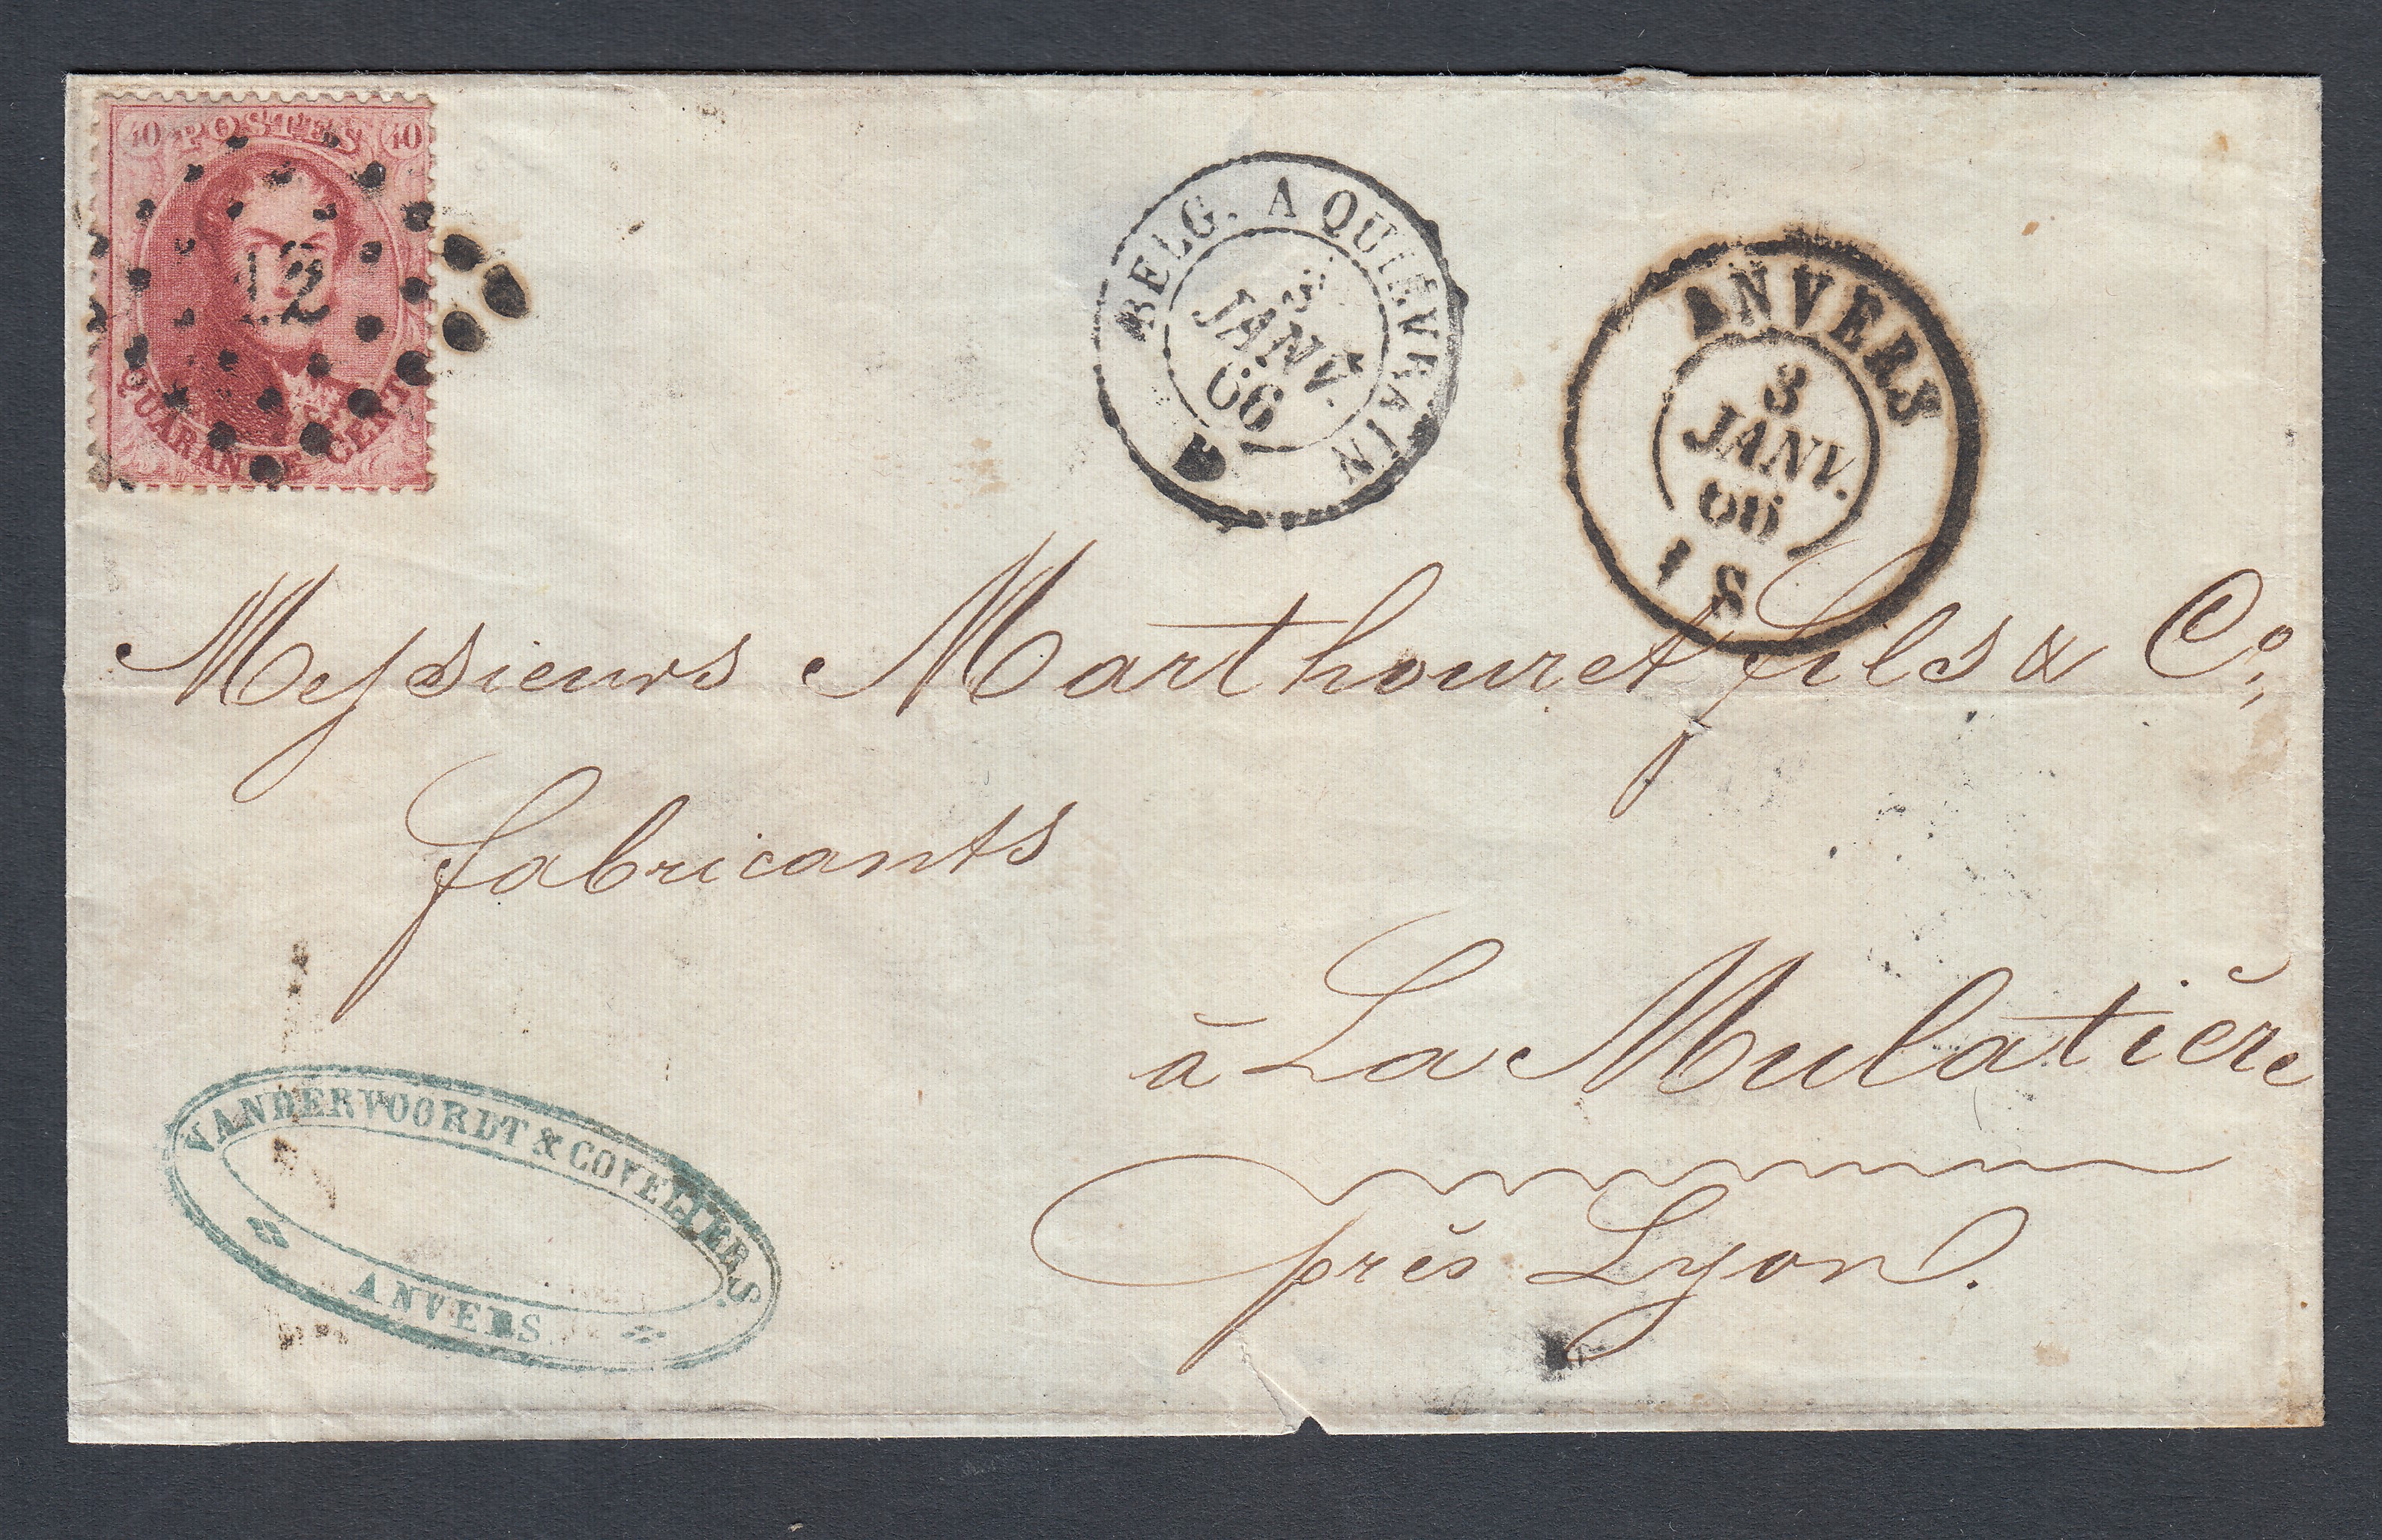 40 POSTES 40
12
QUARANTE CENT
BELG. A QUIÉVRAIN
3
JANV.
66
ANVERS
3
JANV.
66
1 S
Messieurs Marthouret fils & Co,
fabricants
à La Mulatière
près Lyon.
VANDERVOORDT & COVELIERS
ANVERS